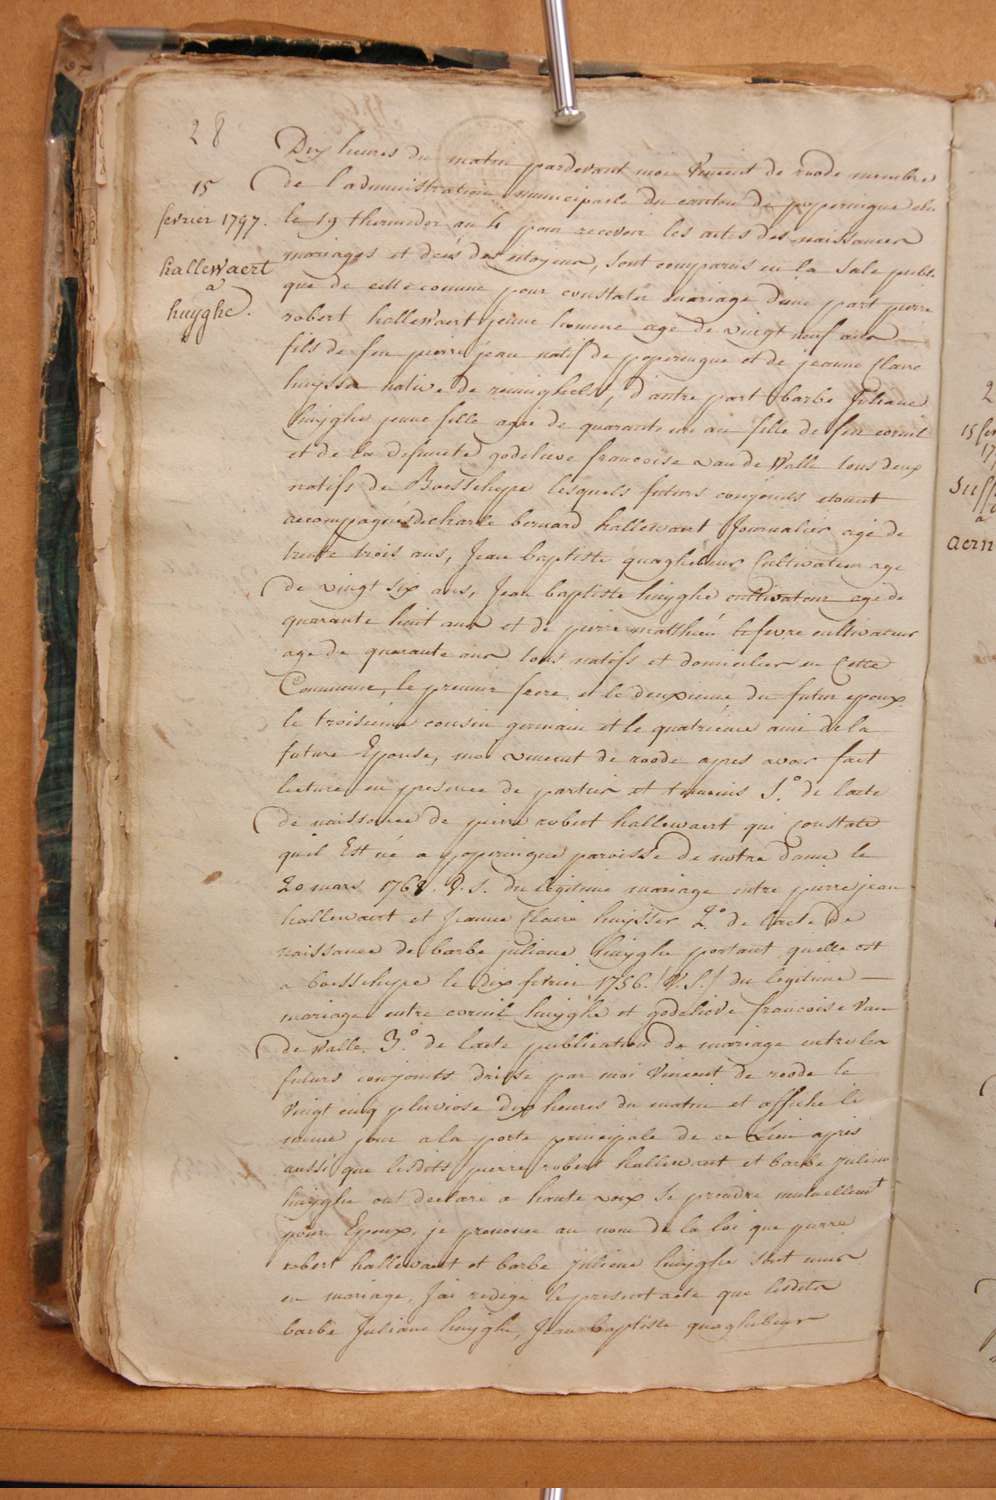 28
15
fevrier 1797.
hallewaert
a
huyghe.
Dix heures du matin pardevant moi Vincent de roode membre
de l'administration municipale du canton de poperingue elu
le 19 thermidor an 4 pour recevoir les actes des naissances
mariages et decés des citoyens, sont comparus en la sale publi
que de cette comune pour constater mariage d'une part pierre
robert hallewaert jeune homme age de vingt neuf ans
fils de feu pierre jean natif de poperingue et de jeanne Claire
huysse native de reninghelst, d'autre part barbe Juliane
huyghe jeune fille agée de quarante un an fille de feu corneil
et de la defuncte godelieve francoise van de Walle tous deux
natifs de Boesschepe lesquels futurs conjoints etoient
accompagnés de charle bernard hallewaert Journalier agé de
trente trois ans, Jean baptiste quaghebeur Cultivateur age
de vingt six ans, Jean baptiste huyghe cultivateur agé de
quarante huit ans et de pierre matthieu lefevre cultivateur
age de quarante ans tous natifs et domicilies en Cette
Commune, le premier frere et le deuxieme du futur epoux
le troisieme cousin germain et le quatrieme ami de la
future Epouse, moi vincent de roode apres avoir fait
lecture en presence de parties et temoins 1.° de lacte
de naissance de pierre robert hallewaert qui constate
quil Est né a poperingue paroisse de notre dame le
20 mars 1768. V.S. du legitime mariage entre pierre jean
hallewaert et Jeanne Claire huysse 2.° de l'acte de
naissance de barbe juliane huyghe portant quelle est
a boesschepe le dix fevrier 1756. V.S. du legitime
mariage entre corneil huyghe et godelieve francoise van
de Walle. 3.° de lacte publication de mariage entre les
futurs conjoints drésse par moi Vincent de roode le
vingt cinq pluviose dix heures du matin et affiche le
meme jour a la porte principale de ce Lieu apres
aussi que lesdits pierre robert hallewaert et barbe juliane
huyghe ont declaré a haute voix se prendre mutuellemt
pour Epoux, je prononce au nom de la loi que pierre
robert hallewaert et barbe juliene huyghe sont unis
en mariage, j'ai redigé le present acte que lesdits
barbe Juliane huyghe, Jean baptiste quaghebeur
15 fev
17
aern